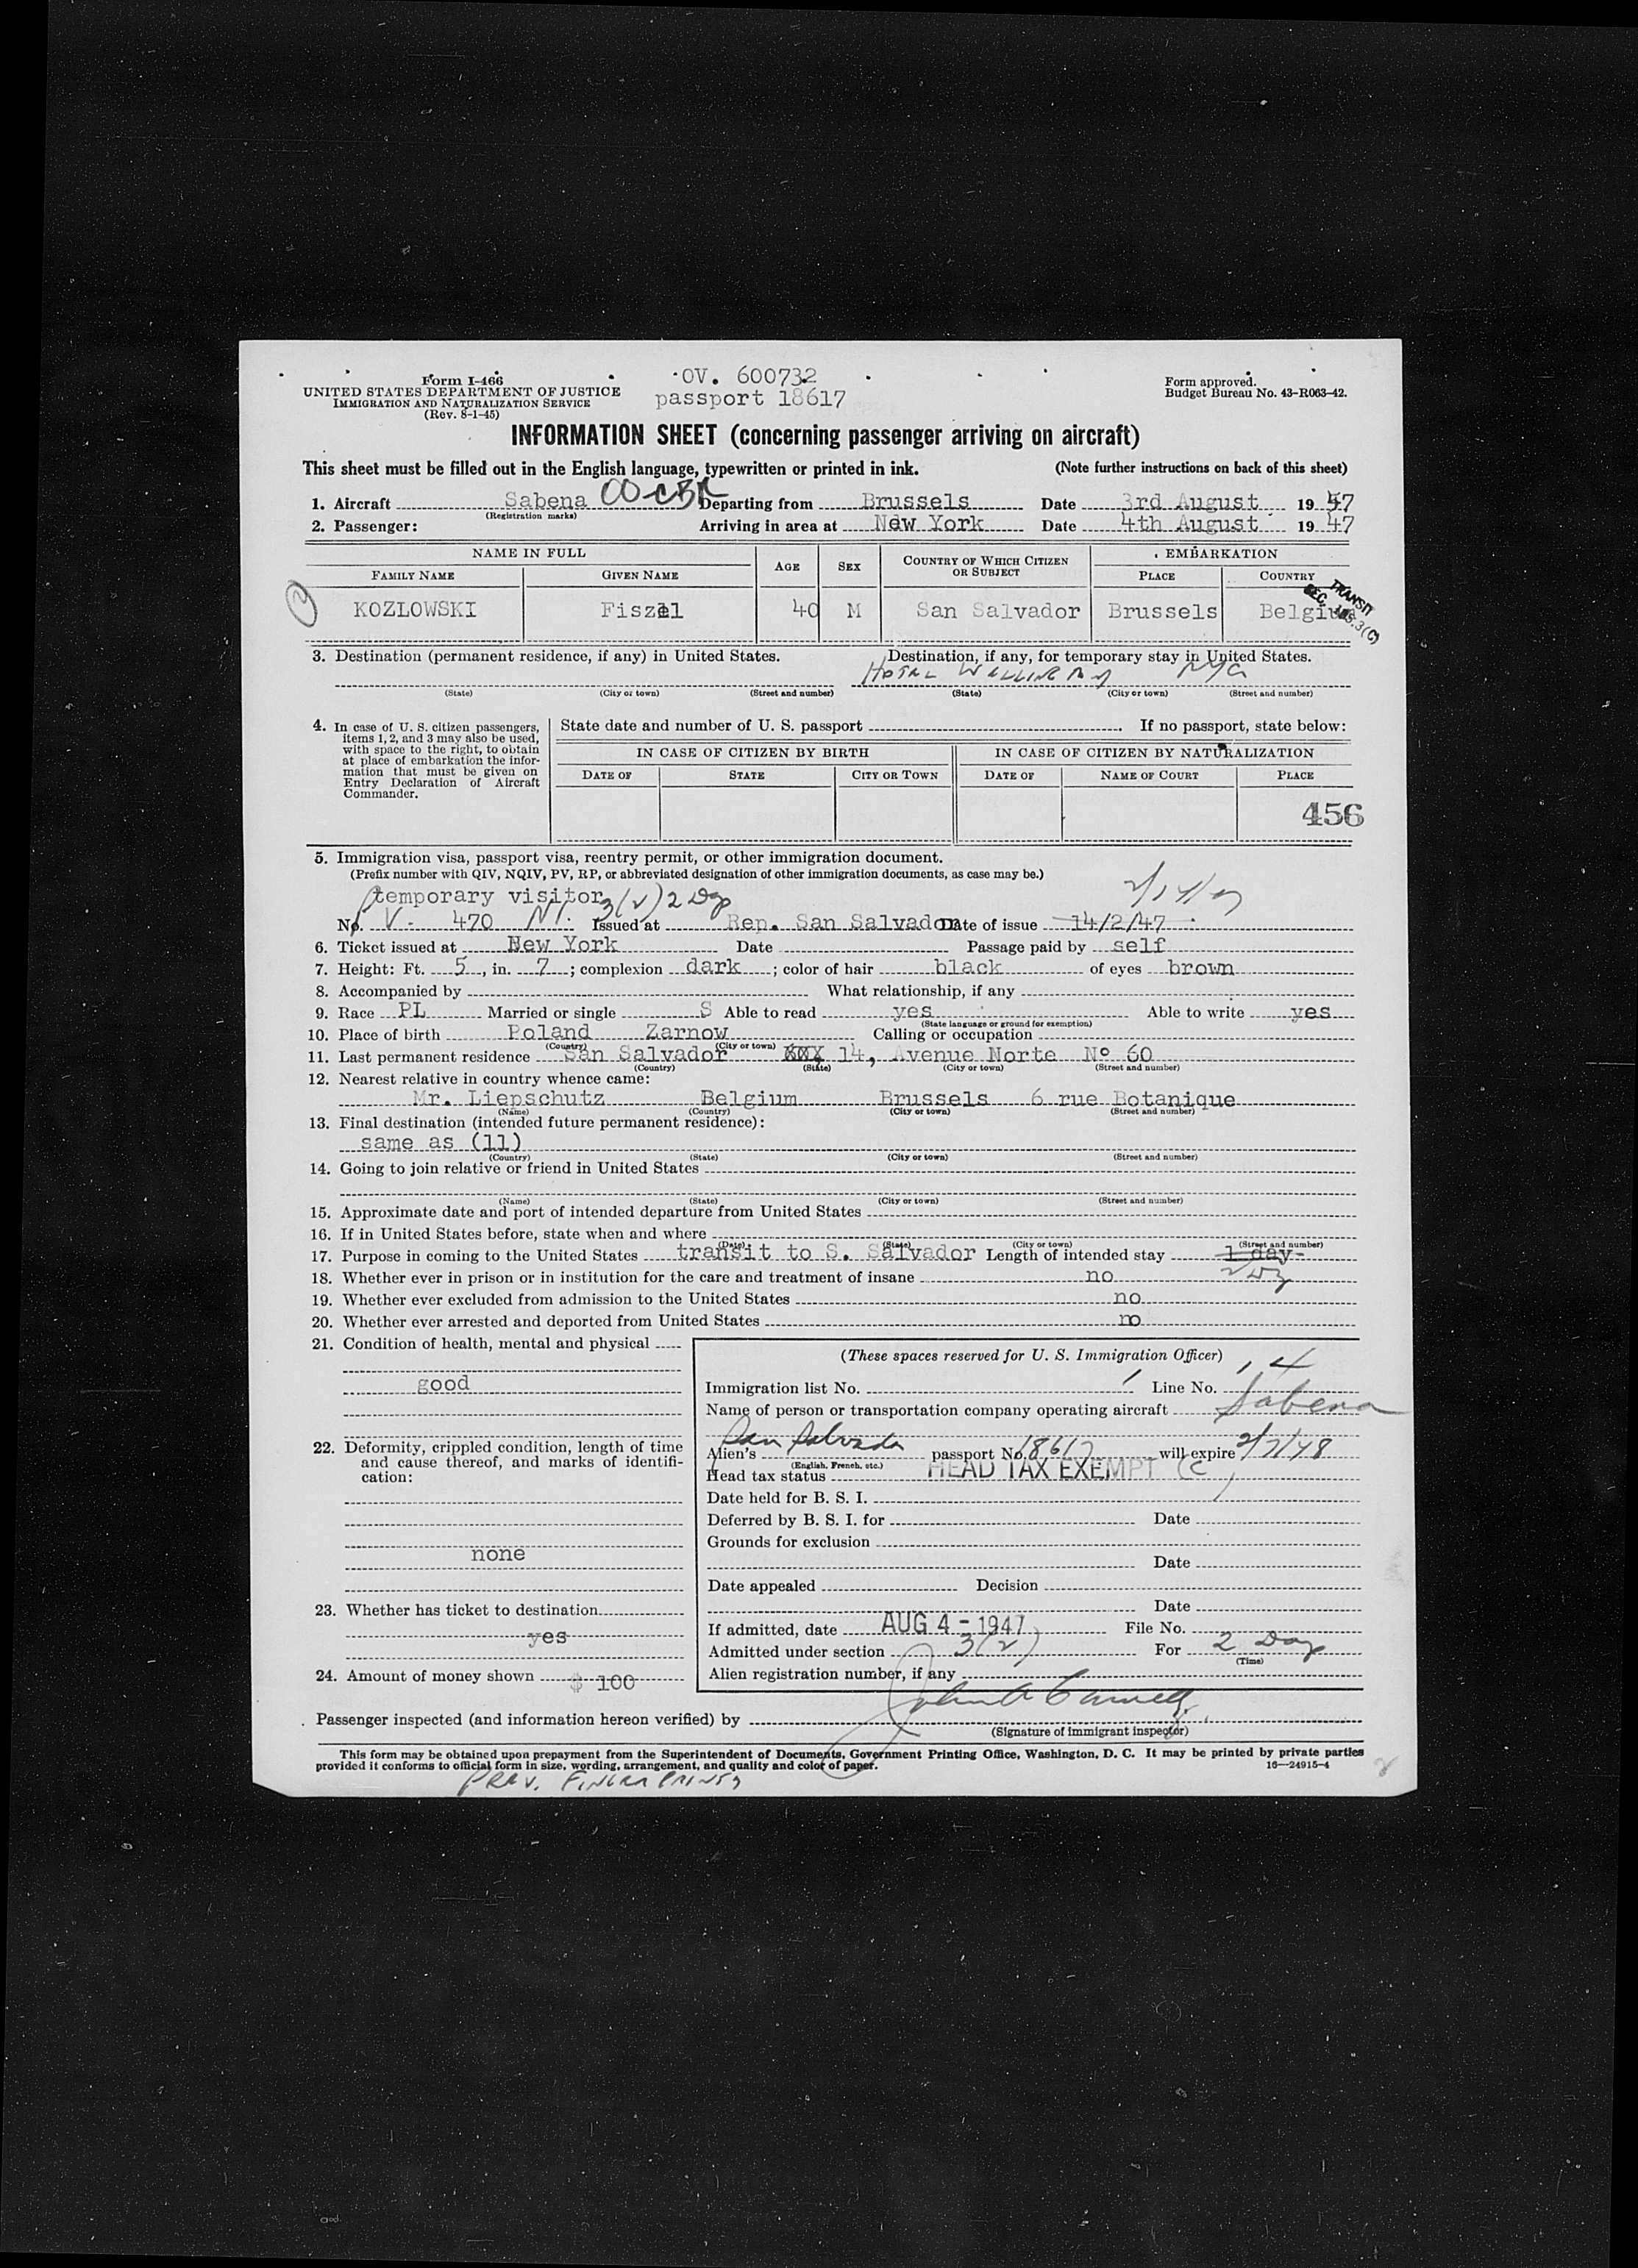 Form I-466
UNITED STATES DEPARTMENT OF JUSTICE
IMMIGRATION AND NATURALIZATION SERVICE
(Rev. 8-1-45)
OV. 600732
passport 18617
Form approved.
Budget Bureau No. 43-R063-42.
INFORMATION SHEET (concerning passenger arriving on aircraft)
This sheet must be filled out in the English language, typewritten or printed in ink. (Note further instructions on back of this sheet)
1. Aircraft Sabena OO-CBR Departing from Brussels Date 3rd August 1947
(Registration marks)
2. Passenger: Arriving in area at New York Date 4th August 1947
NAME IN FULL AGE SEX COUNTRY OF WHICH CITIZEN OR SUBJECT EMBARKATION
FAMILY NAME GIVEN NAME PLACE COUNTRY
KOZLOWSKI Fiszel 40 M San Salvador Brussels Belgium
TRANSIT
3. Destination (permanent residence, if any) in United States. Destination, if any, for temporary stay in United States.
HOTEL NYC
(State) (City or town) (Street and number) (State) (City or town) (Street and number)
4. In case of U. S. citizen passengers, items 1, 2, and 3 may also be used, with space to the right, to obtain at place of embarkation the information that must be given on Entry Declaration of Aircraft Commander.
State date and number of U. S. passport If no passport, state below:
IN CASE OF CITIZEN BY BIRTH IN CASE OF CITIZEN BY NATURALIZATION
DATE OF STATE CITY OR TOWN DATE OF NAME OF COURT PLACE
456
5. Immigration visa, passport visa, reentry permit, or other immigration document.
(Prefix number with QIV, NQIV, PV, RP, or abbreviated designation of other immigration documents, as case may be.)
temporary visitor 3(2) 2 Day
No. V- 470 Issued at Rep. San Salvador Date of issue 14/2/47
6. Ticket issued at New York Date Passage paid by self
7. Height: Ft. 5, in. 7; complexion dark; color of hair black of eyes brown
8. Accompanied by What relationship, if any
9. Race PL Married or single S Able to read yes Able to write yes
(State language or ground for exemption)
10. Place of birth Poland Zarnow Calling or occupation
(Country) (City or town)
11. Last permanent residence San Salvador 14, Avenue Norte No 60
(Country) (State) (City or town) (Street and number)
12. Nearest relative in country whence came:
Mr. Liepschutz Belgium Brussels 6 rue Botanique
(Name) (Country) (City or town) (Street and number)
13. Final destination (intended future permanent residence):
same as (11)
(Country) (State) (City or town) (Street and number)
14. Going to join relative or friend in United States
(Name) (State) (City or town) (Street and number)
15. Approximate date and port of intended departure from United States
16. If in United States before, state when and where
(Date) (State) (City or town) (Street and number)
17. Purpose in coming to the United States transit to S. Salvador Length of intended stay 1 day
18. Whether ever in prison or in institution for the care and treatment of insane no
19. Whether ever excluded from admission to the United States no
20. Whether ever arrested and deported from United States no
21. Condition of health, mental and physical
good
22. Deformity, crippled condition, length of time and cause thereof, and marks of identification:
none
23. Whether has ticket to destination
yes
24. Amount of money shown $ 100
(These spaces reserved for U. S. Immigration Officer)
Immigration list No. Line No. 4
Name of person or transportation company operating aircraft Sabena
Alien's San Salvador passport No. 18617 will expire 2/7/48
(English, French, etc.)
Head tax status HEAD TAX EXEMPT (C)
Date held for B. S. I.
Deferred by B. S. I. for Date
Grounds for exclusion
Date
Date appealed Decision
Date
If admitted, date AUG 4 - 1947 File No.
Admitted under section 3(2) For 2 Day
(Time)
Alien registration number, if any
Passenger inspected (and information hereon verified) by
(Signature of immigrant inspector)
This form may be obtained upon prepayment from the Superintendent of Documents, Government Printing Office, Washington, D. C. It may be printed by private parties
provided it conforms to official form in size, wording, arrangement, and quality and color of paper. 16—24915-4
PREV. FINGERPRINTS